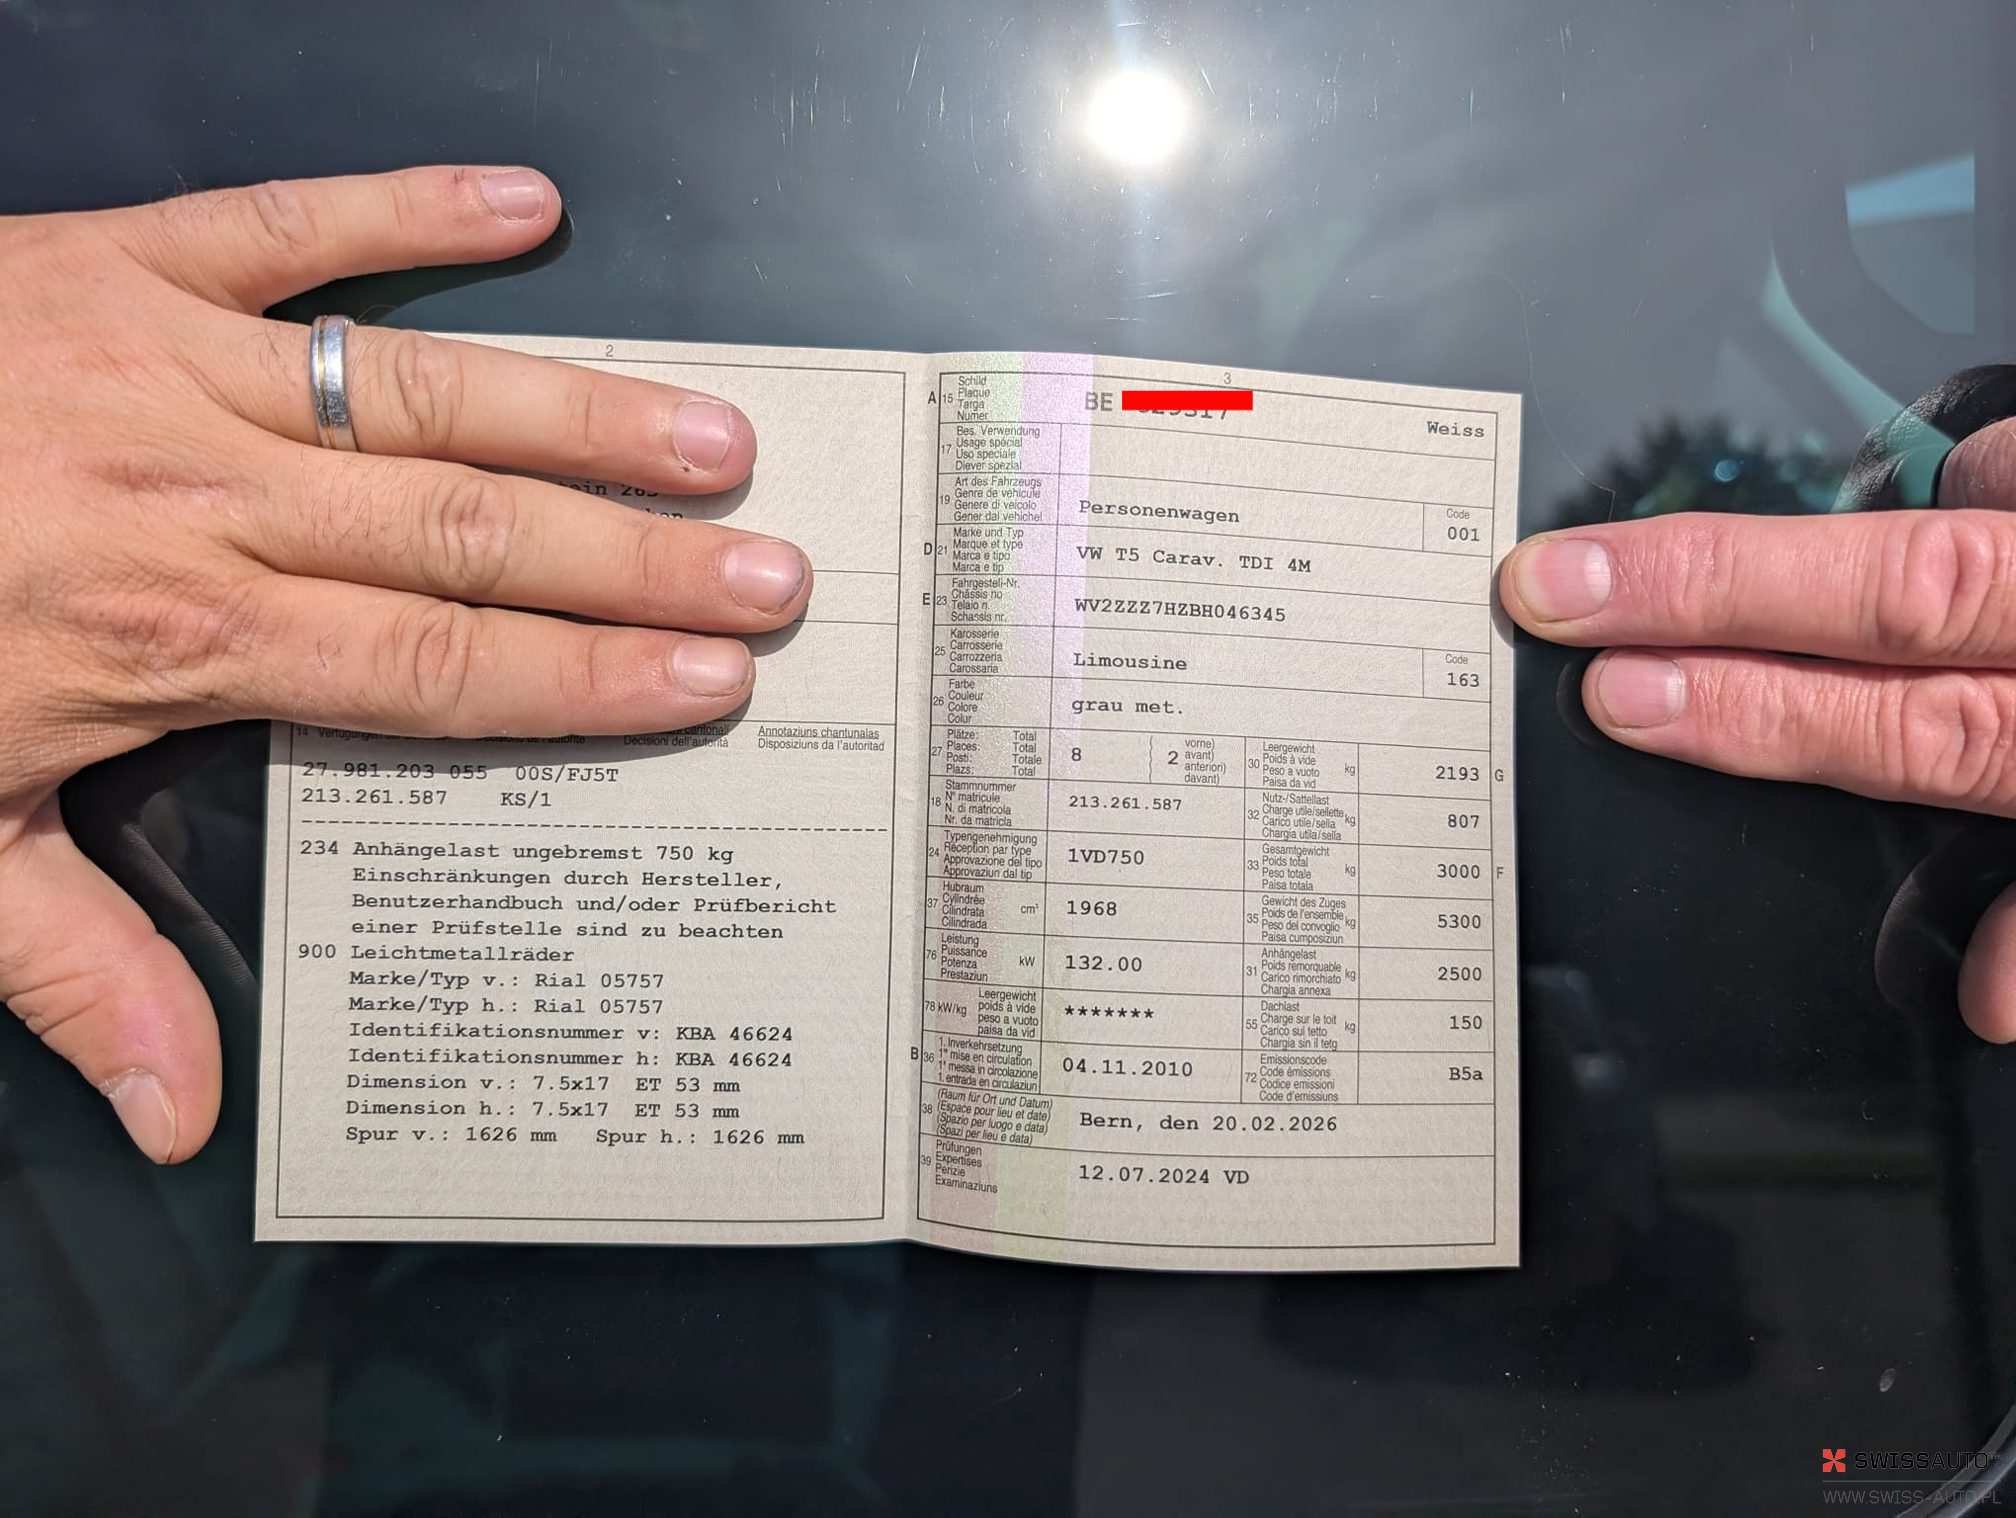 2
27.981.203 055 00S/FJ5T
213.261.587 KS/1
Annotaziuns chantunalas
Decisioni dell'autorità Disposiziuns da l'autoritad
234 Anhängelast ungebremst 750 kg
Einschränkungen durch Hersteller,
Benutzerhandbuch und/oder Prüfbericht
einer Prüfstelle sind zu beachten
900 Leichtmetallräder
Marke/Typ v.: Rial 05757
Marke/Typ h.: Rial 05757
Identifikationsnummer v: KBA 46624
Identifikationsnummer h: KBA 46624
Dimension v.: 7.5x17 ET 53 mm
Dimension h.: 7.5x17 ET 53 mm
Spur v.: 1626 mm Spur h.: 1626 mm
3
A 15 Schild
Plaque
Targa
Numer
BE
Weiss
17 Bes. Verwendung
Usage spécial
Uso speciale
Diever spezial
19 Art des Fahrzeugs
Genre de véhicule
Genere di veicolo
Gener dal vehichel
Personenwagen
Code
001
D 21 Marke und Typ
Marque et type
Marca e tipo
Marca e tip
VW T5 Carav. TDI 4M
E 23 Fahrgestell-Nr.
Châssis no
Telaio n.
Schassis nr.
WV2ZZZ7HZBH046345
25 Karosserie
Carrosserie
Carrozzeria
Carossaria
Limousine
Code
163
26 Farbe
Couleur
Colore
Colur
grau met.
27 Plätze: Total
Places: Total
Posti: Totale
Plazs: Total
8
2
vorne)
avant)
anteriori)
davant)
30 Leergewicht
Poids à vide
Peso a vuoto
Paisa da vid
kg
2193 G
18 Stammnummer
N° matricule
N. di matricola
Nr. da matricla
213.261.587
32 Nutz-/Sattellast
Charge utile/sellette
Carico utile/sella
Chargia utila/sella
kg
807
24 Typengenehmigung
Réception par type
Approvazione del tipo
Approvaziun dal tip
1VD750
33 Gesamtgewicht
Poids total
Peso totale
Paisa totala
kg
3000 F
37 Hubraum
Cylindrée
Cilindrata
Cilindrada
cm³
1968
35 Gewicht des Zuges
Poids de l'ensemble
Peso del convoglio
Paisa cumposiziun
kg
5300
76 Leistung
Puissance
Potenza
Prestaziun
kW
132.00
31 Anhängelast
Poids remorquable
Carico rimorchiato
Chargia annexa
kg
2500
78 kW/kg Leergewicht
poids à vide
peso a vuoto
paisa da vid
*******
55 Dachlast
Charge sur le toit
Carico sul tetto
Chargia sin il tetg
kg
150
B 36 1. Inverkehrsetzung
1re mise en circulation
1a messa in circolazione
1. entrada en circulaziun
04.11.2010
72 Emissionscode
Code émissions
Codice emissioni
Code d'emissiuns
B5a
38 (Raum für Ort und Datum)
(Espace pour lieu et date)
(Spazio per luogo e data)
(Spazi per lieu e data)
Bern, den 20.02.2026
39 Prüfungen
Expertises
Perizie
Examinaziuns
12.07.2024 VD
SWISSAUTO
WWW.SWISS-AUTO.PL